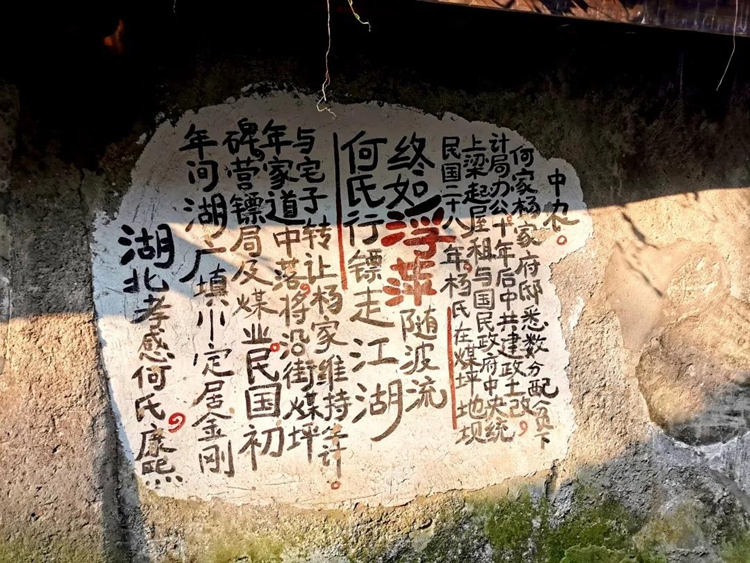 湖北孝感何氏，康熙
年间湖广填川定居金刚
碑，营镖局及煤业，民国初
年家道中落，将沿街煤坪
与宅子转让杨家维持生计。
何氏行镖走江湖
终如浮萍随波流
民国二十八年，杨氏在煤坪地坝
上梁起屋租与国民政府中央统
计局办公。十年后中共建政土改，
何家杨家府邸悉数分配贫下
中农。